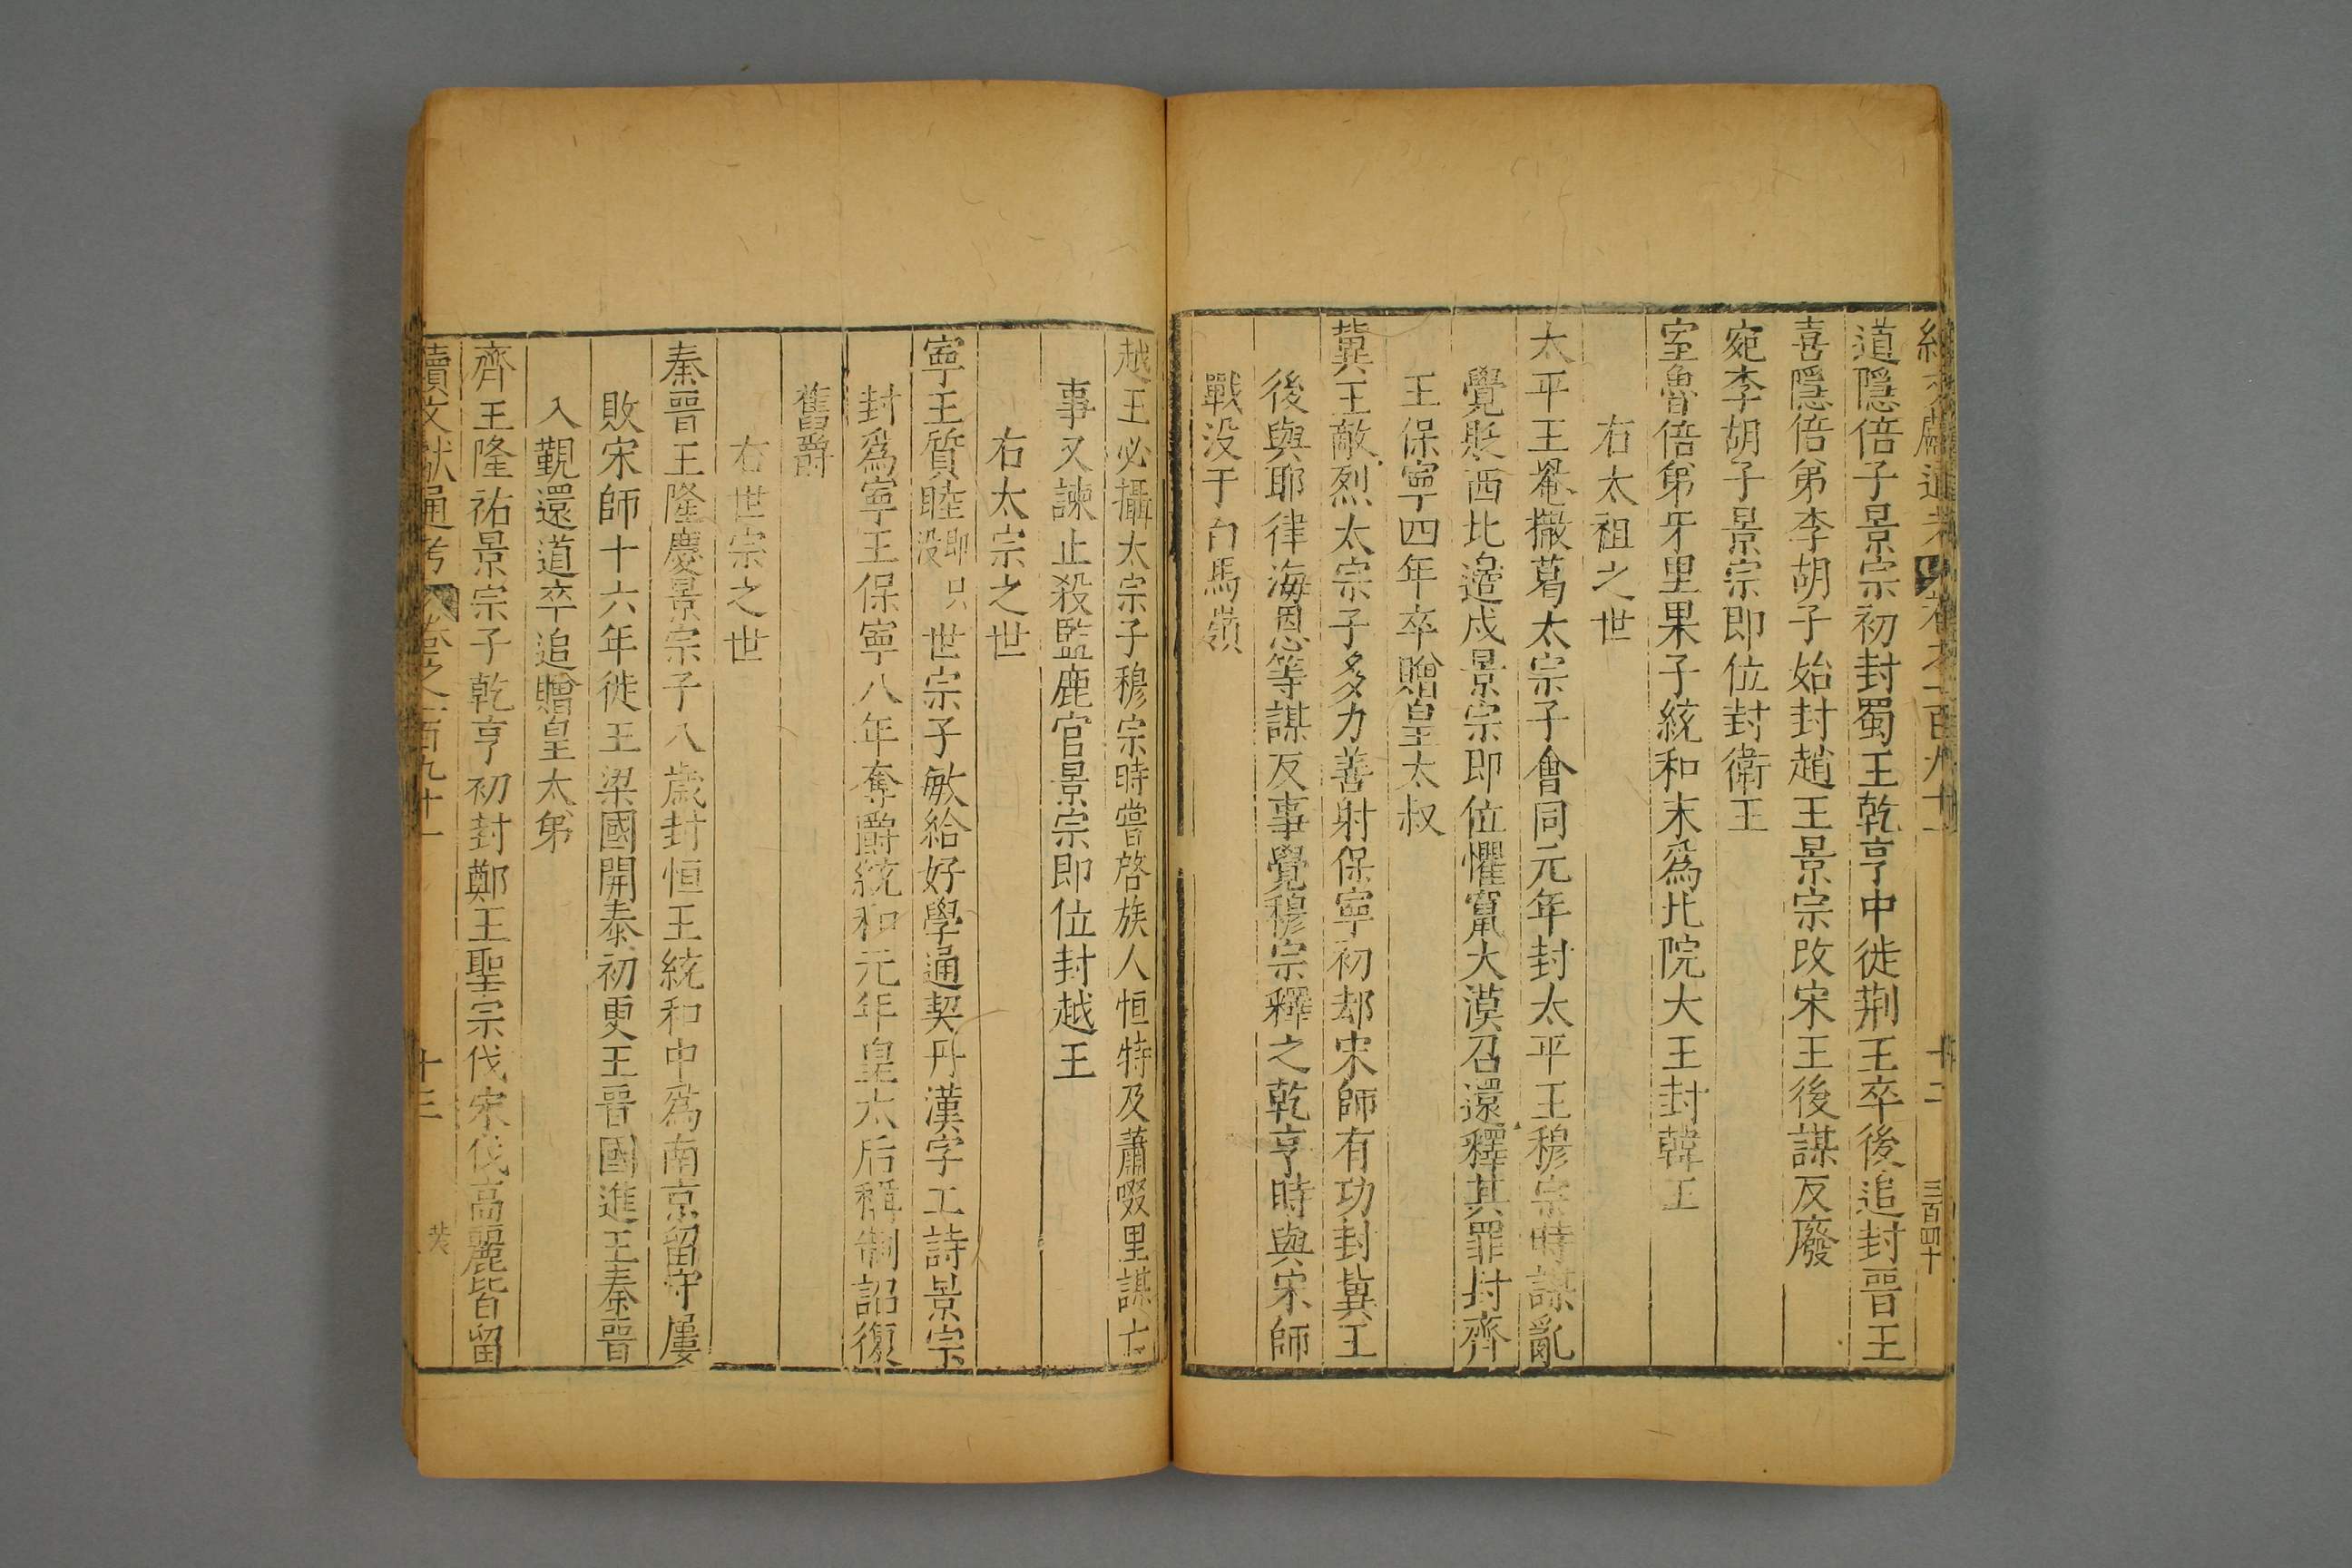 道隱倍子景宗初封蜀王乾亨中徙荆王卒後追封晉王
喜隱倍弟李胡子始封趙王景宗改宋王後謀反廢
宛李胡子景宗即位封衛王
室魯倍弟牙里果子統和末爲北院大王封韓王
右太祖之世
太平王罨撒葛太宗子會同元年封太平王穆宗時謀亂
覺貶西北邊戍景宗即位懼竄大漠召還釋其罪封齊
王保寧四年卒贈皇太叔
冀王敵烈太宗子多力善射保寧初却宋師有功封冀王
後與耶律海思等謀反事覺穆宗釋之乾亨時與宋師
戰没于白馬嶺
越王必攝太宗子穆宗時嘗啓族人恒特及蕭啜里謀亡
事又諫止殺監鹿官景宗即位封越王
右太宗之世
寧王質睦即只没世宗子敏給好學通契丹漢字工詩景宗
封爲寧王保寧八年奪爵統和元年皇太后稱制詔復
舊爵
右世宗之世
秦晉王隆慶景宗子八歲封恒王統和中爲南京留守屢
敗宋師十六年徙王梁國開泰初更王晉國進王秦晉
入覲還道卒追贈皇太弟
齊王隆祐景宗子乾亨初封鄭王聖宗伐宋伐高麗皆留
續文獻通考 卷之一百九十一 十三